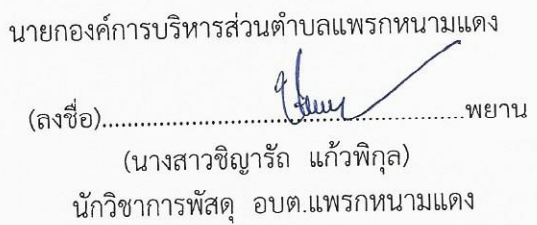 นายกองค์การบริหารส่วนตำบลแพรกหนามแดง
(ลงชื่อ)................................................................พยาน
(นางสาวชิญารัถ แก้วพิกุล)
นักวิชาการพัสดุ อบต.แพรกหนามแดง